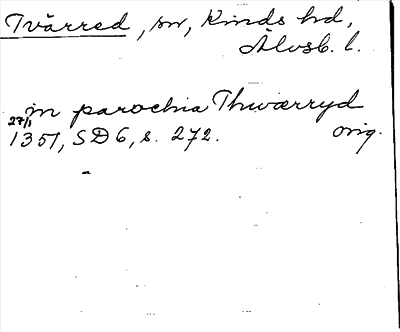 Tvärred, sn, Kinds hd,
Älvsb. l.
in parochia Thwærryd
27/1
1351, SD 6, s. 272. orig.